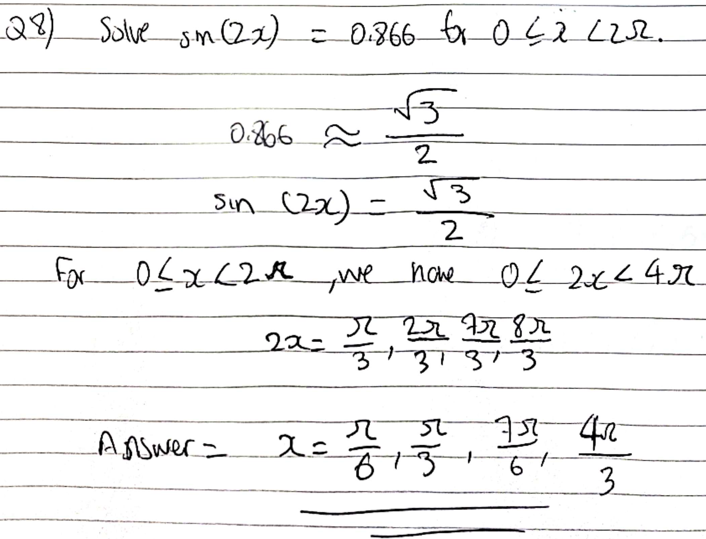 Q8) Solve sin(2x) = 0.866 for 0 ≤ x < 2π.
0.866 ≈ √3/2
sin (2x) = √3/2
For 0 ≤ x < 2π, we have 0 ≤ 2x < 4π
2x = π/3, 2π/3, 7π/3, 8π/3
Answer = x = π/6, π/3, 7π/6, 4π/3